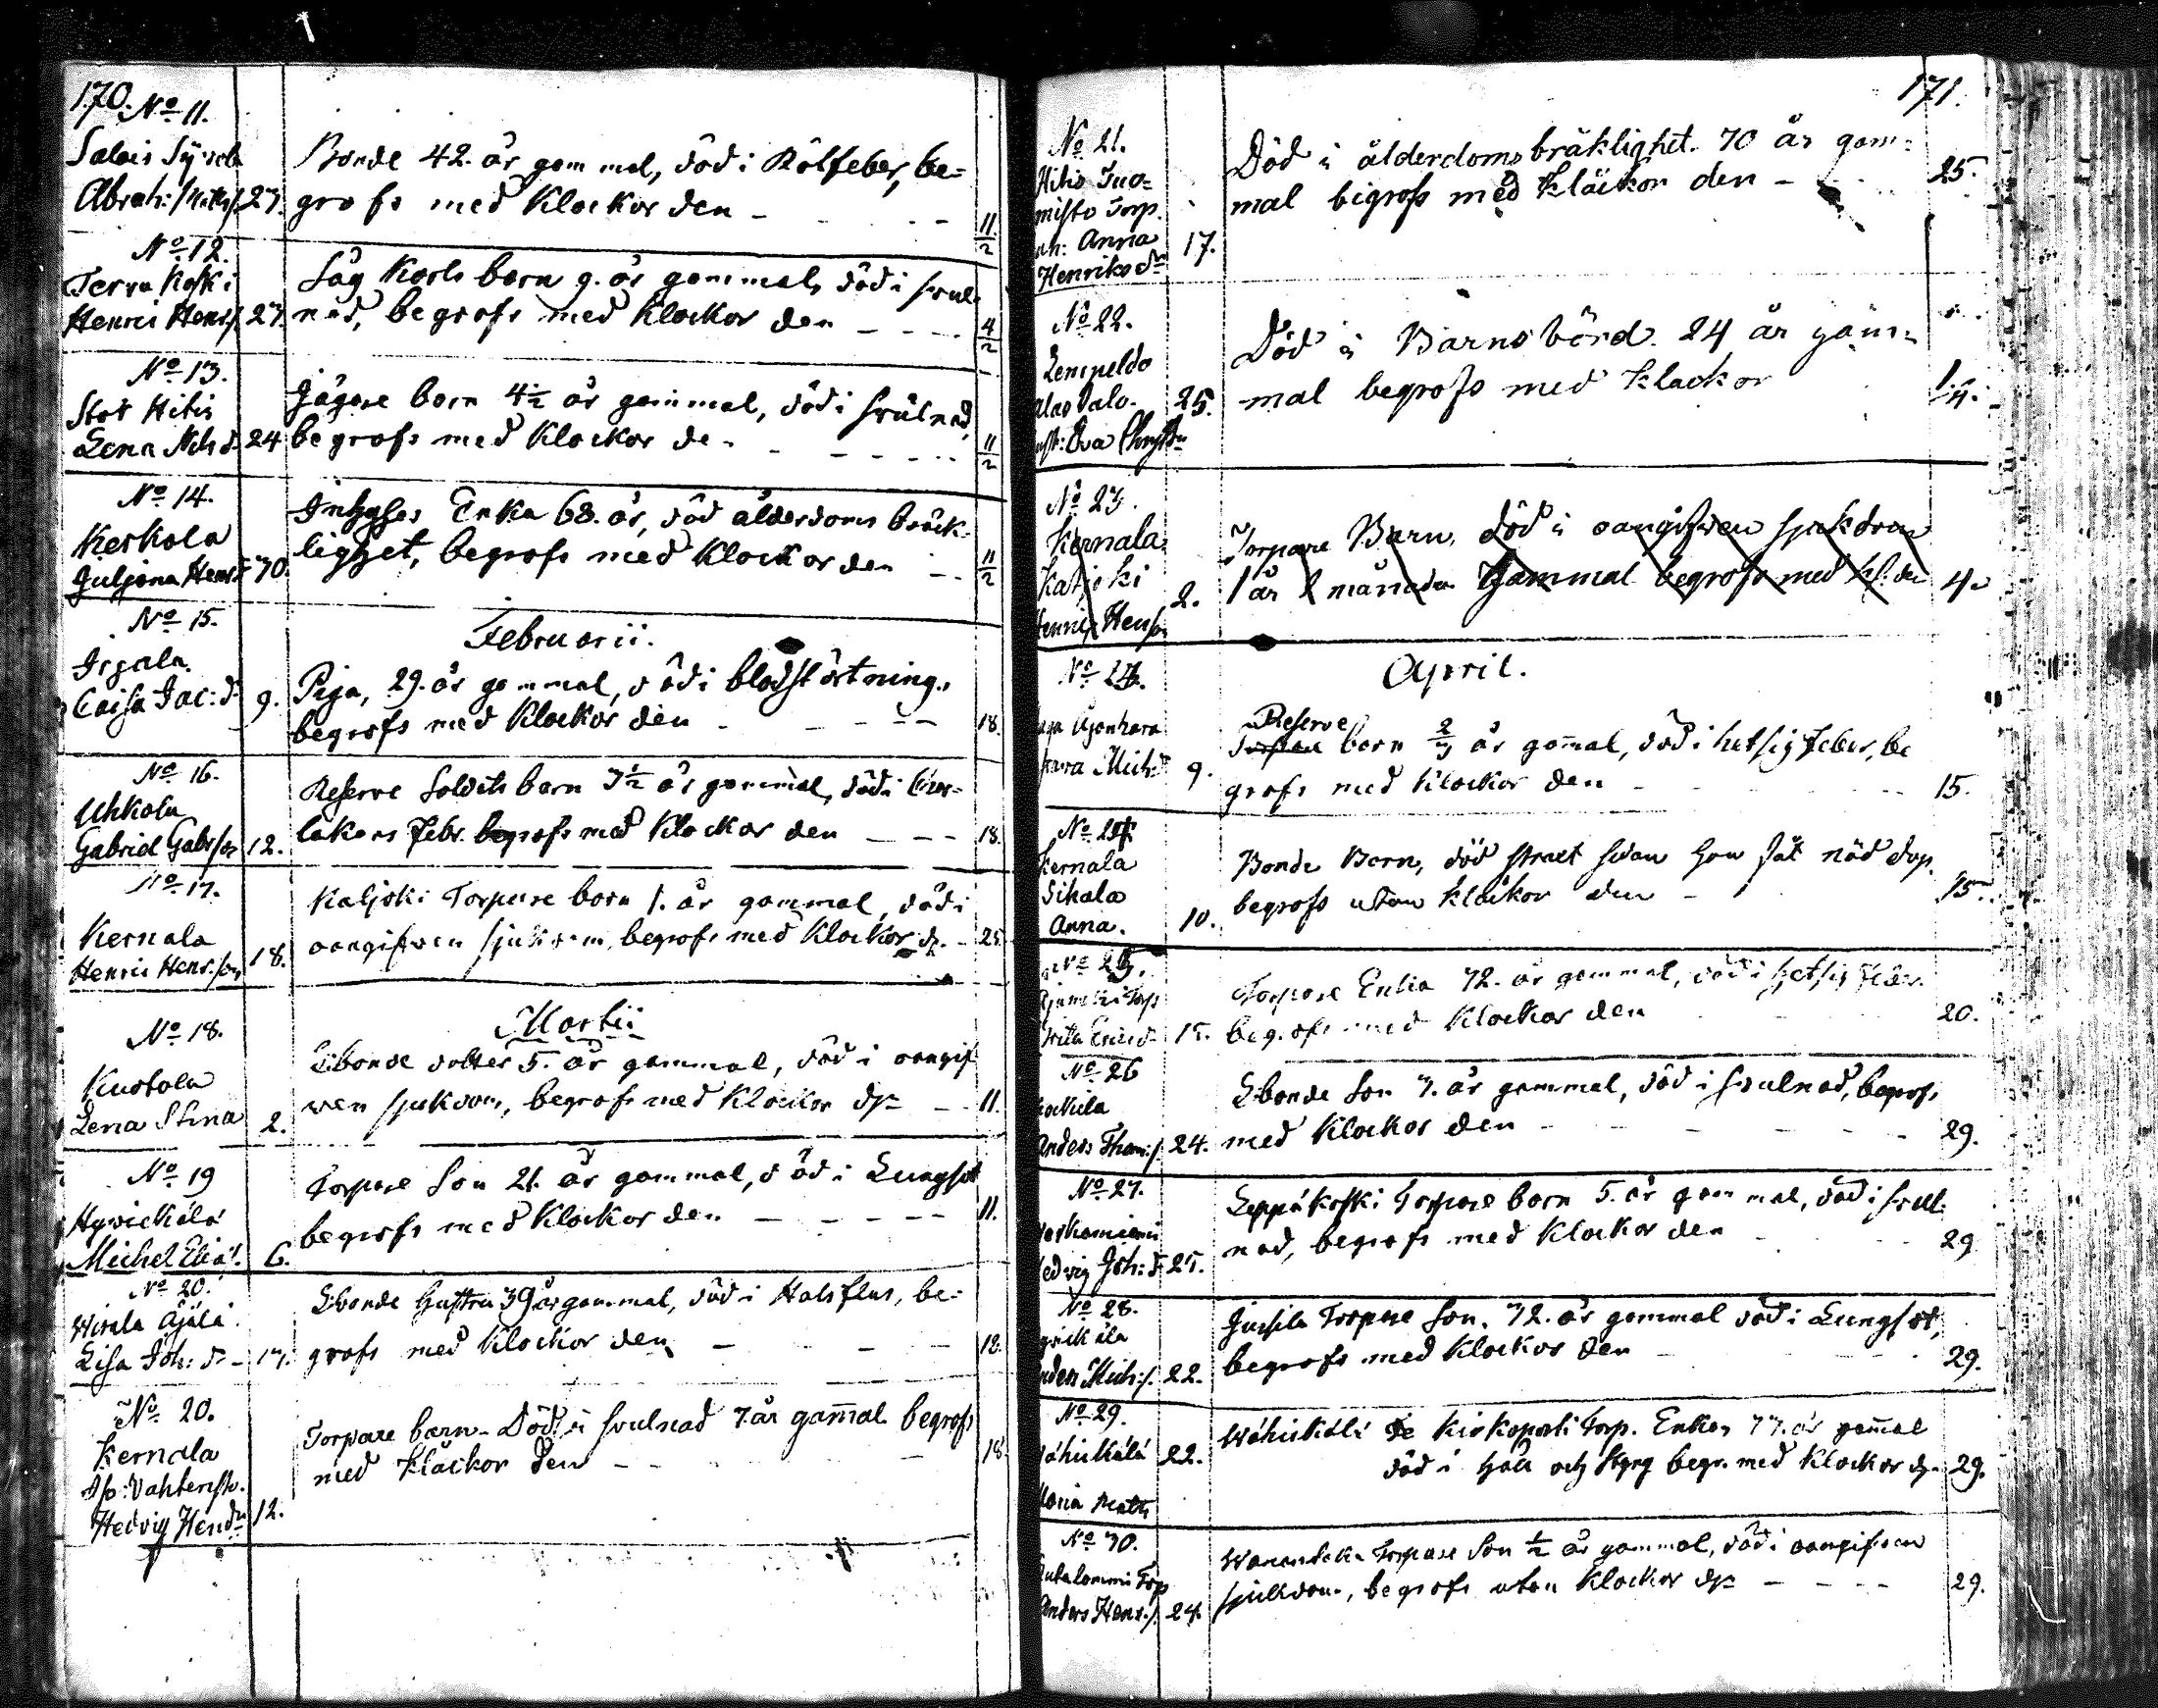 170.
No 11.
Abrah: 27.
Bonde 42. år gammal, död i Rötfeber, be-
grofs med Klockor den - - - 11/2
No 12.
Terva Koski
Henric Hens. 27.
Såg Karls barn 9. år gammal, död i svul-
nad, begrofs med Klockor den - - - 4/2
No 13.
Stor Hitis
Lena Nils d. 24
Jägare barn 4 1/2 år gammal, död i svulnad,
begrofs med Klockor de - - - 11/2
No 14.
Kerkola
Juliana Henr. 70.
Inhyses Enka 68. år, död ålderdoms bräck-
lighet, begrofs med Klockor den - - 11/2
Februarii.
No 15.
Irjala
Caisa Jac: d. 9.
Piga, 29. år gammal, död i blodstörtning,
begrofs med Klockor den - - - 18.
No 16.
Uhkola
Gabriel Gabrson 12.
Reserve Soldats barn 3 1/2 år gammal, död i
lakans Febr. begrofs med Klockor den - - - 18.
No 17.
Kernala
Henric Henr.son 18.
Kaljoki Torpare barn 1. år gammal, död i
oangifven sjukdom, begrofs med Klockor d. - 25
Martii
No 18.
Kustola
Lena Stina 2.
Lbonde dotter 5. år gammal, död i oangif
ven sjukdom, begrofs med Klockor dn - - 11.
No 19
Hyrickälä
Michel Elia s. 6.
Torpare Son 21. år gammal, död i Lungsot
begrofs med Klockor den - - - - 11.
No 20.
Wirala Äjälä
Lisa Joh: d. - 17.
Lbonde Hustru 39 år gammal, död i Halsflus, be-
grofs med Klockor den - - - 18.
No 20.
Kernala
Hedvig Hendr 12.
Torpare barn - Död i svulnad 7 år gammal begrofs
med Klåckor den - - - 18
171.
No 21.
misto Torp.
Anna
Henriksdr 17.
Död i ålderdoms bräklighet. 70 år gam-
mal bigrofs med Klåckor den - 25.
No 22.
Lempeldo
Eva 25.
Död i Barnsbörd. 24 år gam-
mal begrofs med klackor 1/4.
No 23.
Kernala
Katjoki
Henric Henson 2.
Torpare Barn, död i oangifven sjukdom
1 år månader Gammal begrofs med kl. den 4.
April.
No 24.
Mich: d 9.
Reserve
Torpare barn 2/3 år gammal, död i hetsig feber, be
grofs med Klockor den - - - 15.
No 24
Kernala
Sikala
Anna. 10.
Bonde Barn, död straxt sedan hon fått nöd dop.
begrofs utan klåkor den - 15.
No 25.
15.
Torpare Enka 72. år gammal, död i hetsig feber.
begrofs med Klockor den 20.
No 26
Anders Thom: s. 24.
Lbonde Son 3. år gammal, död i svulnad, begrofs
med Klockor den - - - 29.
No 27.
Hedvig Joh: d 25.
Leppäkoski Torpare barn 5. år gammal, död i svul-
nad, begrofs med Klockor den 29
No 28.
Anders Mich: s. 22.
Torpare Son. 32. år gammal död i Lungsot,
begrofs med Klockor den 29.
No 29.
Wähickälä 22.
Maria Matts
Wähickälä Torp. Enkan 77. år gammal
död i håll och styng begr. med Klockor dn. 29.
No 30.
Anders Henr. s. 24.
Torpare Son 1/2 år gammal, död i oangifven
sjukdom, begrofs utan Klockor dn - - - 29.